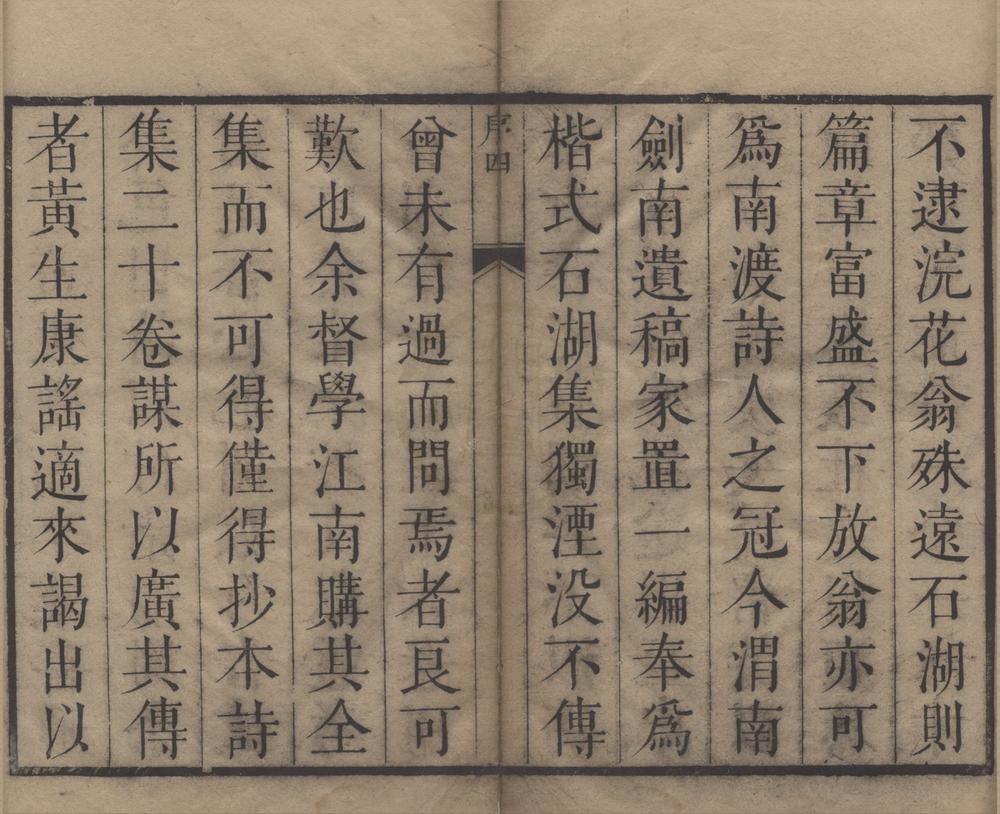 不逮浣花翁殊遠石湖則
篇章富盛不下放翁亦可
爲南渡詩人之冠今渭南
劍南遺稿家置一編奉爲
楷式石湖集獨湮没不傳
序四
曾未有過而問焉者良可
歎也余督學江南購其全
集而不可得僅得抄本詩
集二十卷謀所以廣其傳
者黃生康謠適來謁出以